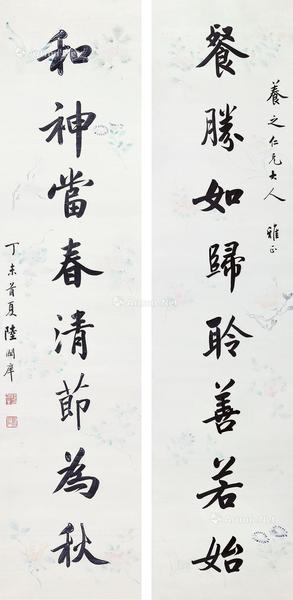 養之仁兄大人 雅正
餐勝如歸聆善若始
和神當春清節為秋
丁未首夏 陸潤庠